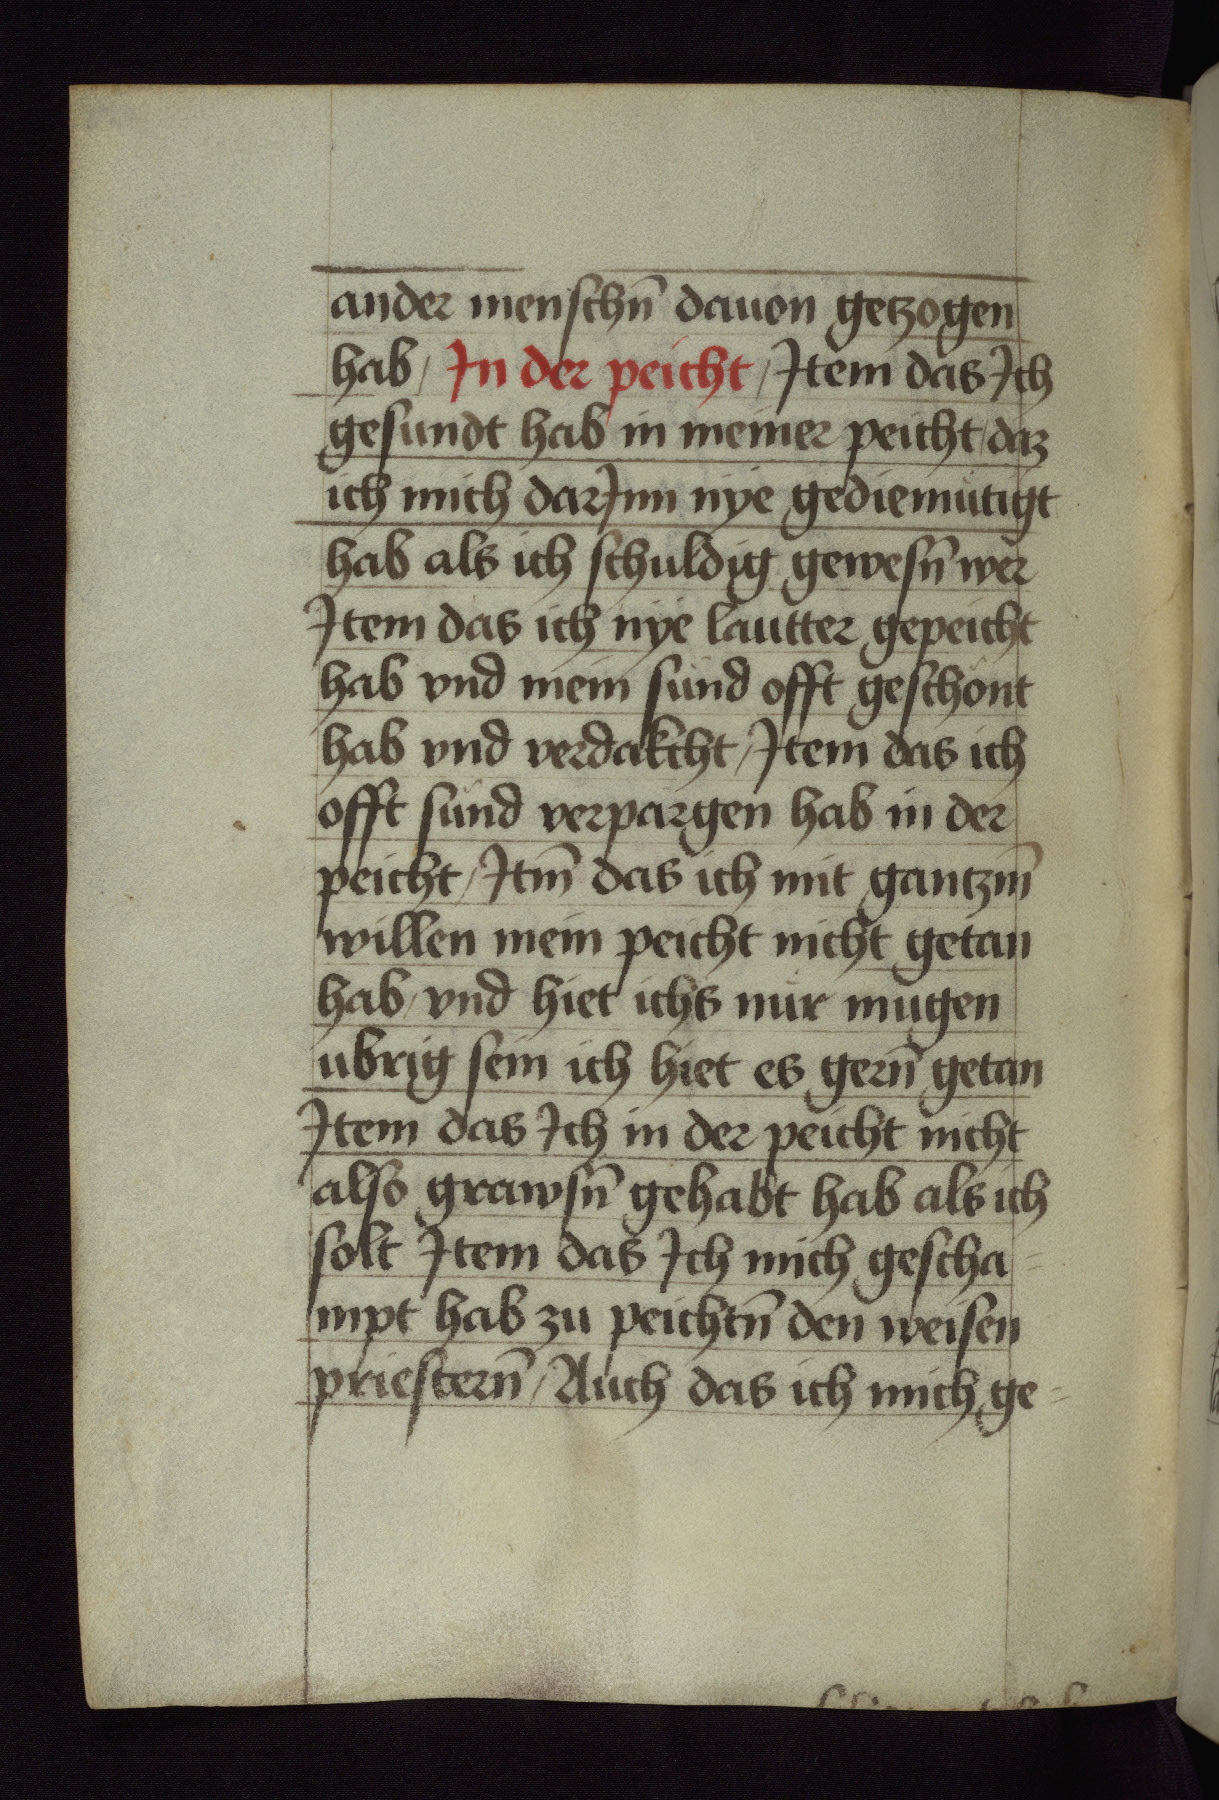 ander menschn̄ dauon getzogen
hab / In der peicht / Item das Ich
gesundt hab in meiner peicht / daz
ich mich darInn nye gediemütigt
hab als ich schuldig gewesn̄ wër
Item das ich nye lautter gepeicht
hab vnd mein sünd offt geschönt
hab vnd verdakcht / Item das ich
offt sünd verpargen hab in der
peicht / Itm̄ das ich mit gantzm̄
willen mein peicht nicht getan
hab / vnd hiet ichs nür mugen
ubrig sein ich hiet es gern̄ getan
Item das Ich in der peicht nicht
also grawsn̄ gehabt hab als ich
solt Item das Ich mich gescha=
mpt hab zu peichtn̄ den weisen
priestern̄ / Auch das ich mich ge=